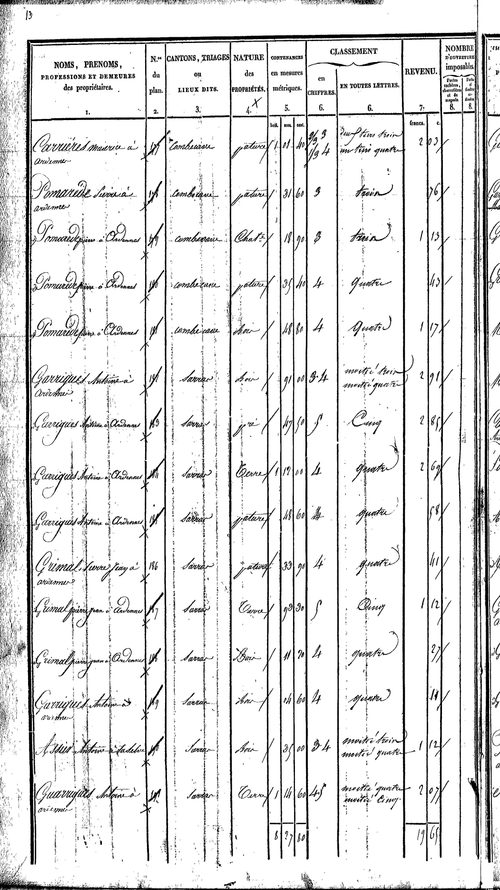 13
NOMS, PRENOMS, PROFESSIONS ET DEMEURES des propriétaires. 1.
N.os du plan. 2.
CANTONS, TRIAGES ou LIEUX DITS. 3.
NATURE des PROPRIÉTÉS. 4.
CONTENANCES en mesures métriques. 5.
CLASSEMENT
en CHIFFRES. 6.
EN TOUTES LETTRES. 6.
REVENU. 7.
NOMBRE D'OUVERTURES imposables. 8. 8.
hect. ares. cent. francs. c.
Carrières maurice à ardenne combecave pature 1 01 40 2 03
Pomarède pierre à ardenne combecave pature 31 60 3 trois 76
Pomarède pierre à Ardennes combecave 18 90 3 trois 1 13
Pomarède pierre à Ardennes combecave pature 35 40 4 quatre 43
Pomarède pierre à Ardennes combecave bois 48 80 4 quatre 1 17
Garrigues Antoine à Ardenne Sarrac bois 91 00 3-4 moitié trois moitié quatre 2 91
Garrigues Antoine à Ardennes 183 Sarrac pré 47 50 5 Cinq 2 85
Garrigues Antoine à Ardennes 184 Sarrac Terre 1 12 00 4 quatre 2 69
Garrigues Antoine à Ardennes Sarrac pature 48 60 4 quatre 58
Grimal pierre jean à ardenne 186 Sarrac pature 33 90 4 quatre 41
Grimal pierre jean à Ardennes 187 Sarrac Terre 93 30 5 Cinq 1 12
Grimal pierre jean à Ardennes Sarrac Bois 11 70 4 quatre 27
Garrigues Antoine à ardenne 189 Sarrac bois 04 60 4 quatre 11
Antoine à Sarrac bois 35 00 3-4 moitié trois moitié quatre 1 12
Guarrigues Antoine à ardenne Sarrac Terre 1 14 60 4-5 moitié quatre moitié Cinq 2 07
8 27 80 19 65